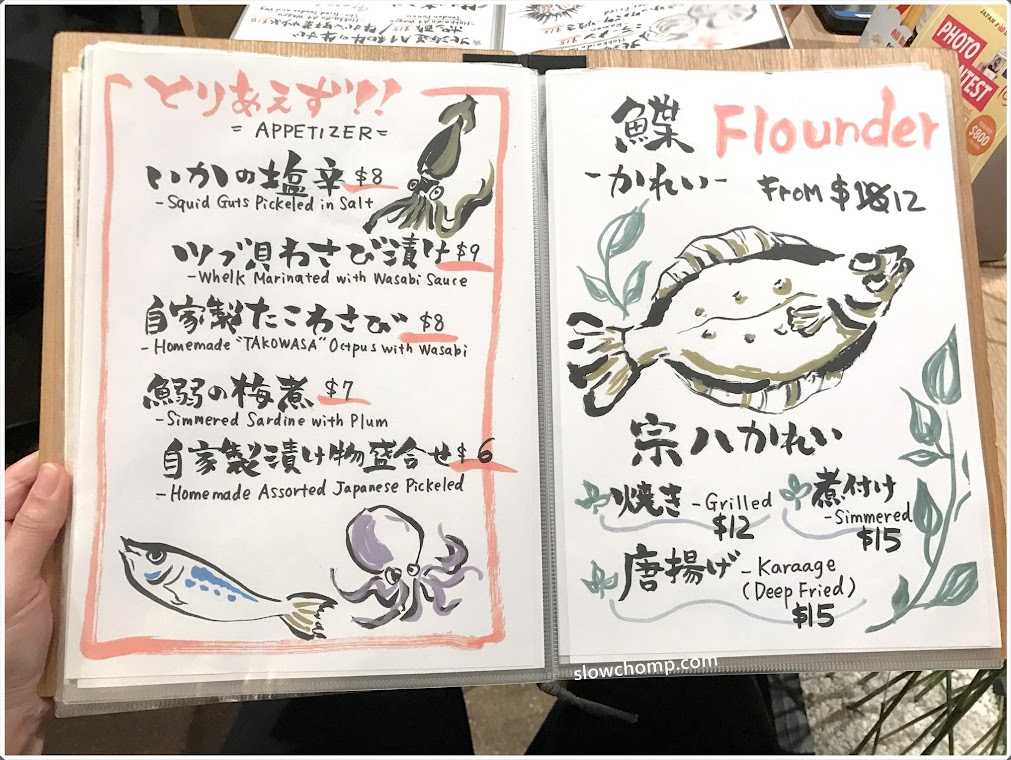 とりあえず!!
= APPETIZER=
いかの塩辛 $8
- Squid Guts Pickeled in Salt
ツブ貝わさび漬け $9
- Whelk Marinated with Wasabi Sauce
自家製たこわさび $8
- Homemade "TAKOWASA" Octpus with Wasabi
鰯の梅煮 $7
- Simmered Sardine with Plum
自家製漬け物盛合せ $6
- Homemade Assorted Japanese Pickeled
鰈 Flounder
-かれい-
FROM $12
宗八かれい
焼き - Grilled
$12
煮付け
- Simmered
$15
唐揚げ - Karaage
(Deep Fried)
$15
slowchomp.com
JAPAN
PHOTO
$800